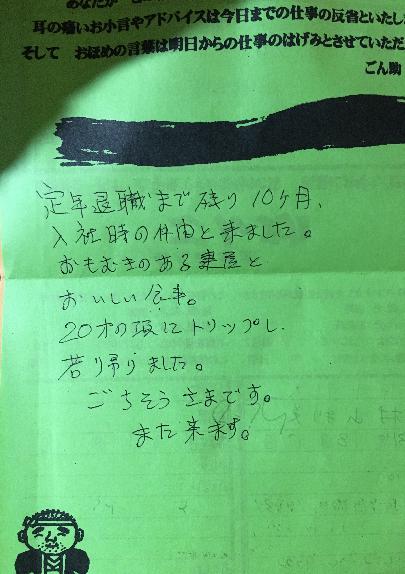 あなたが
耳の痛いお小言やアドバイスは今日までの仕事の反省といたし
そして おほめの言葉は明日からの仕事のはげみとさせていただ
ごん助
定年退職まで残り10ヶ月、
入社時の仲間と来ました。
おもむきのある家屋と
おいしい食事。
20才の頃にトリップし、
若り帰りました。
ごちそうさまです。
また来ます。